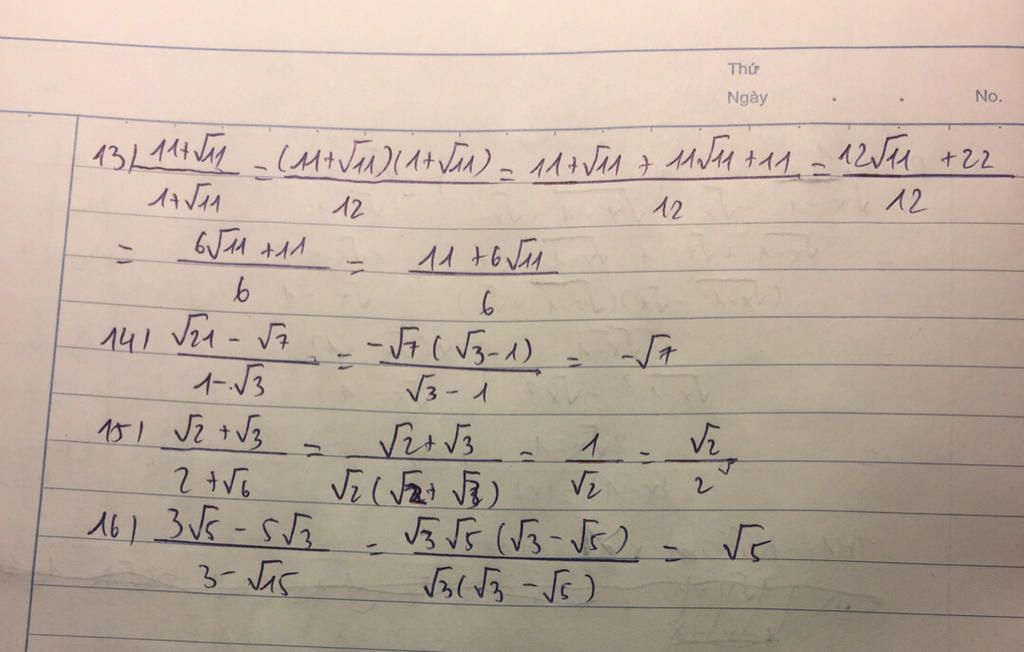 Thứ
Ngày . . No.
13) (11+√11)/(1+√11) = ((11+√11)(1+√11))/12 = (11+√11 + 11√11+11)/12 = (12√11 +22)/12
= (6√11 +11)/6 = (11 +6√11)/6
14) (√21 - √7)/(1-√3) = (-√7 (√3-1))/(√3 - 1) = -√7
15) (√2 +√3)/(2+√6) = (√2+√3)/(√2(√2+ √3)) = 1/√2 = √2/2
16) (3√5 - 5√3)/(3-√15) = (√3√5 (√3 -√5))/(√3(√3 -√5)) = √5